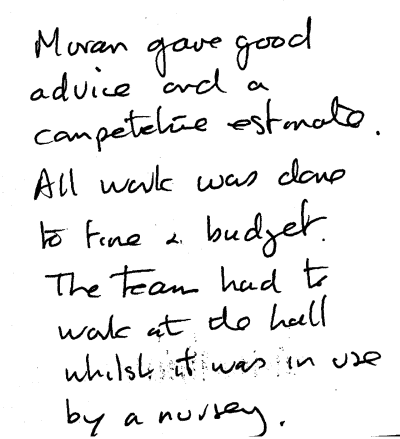 Moran gave good
advice and a
competetive estimate.
All work was done
to time & budget.
The Team had to
work at the hall
whilst it was in use
by a nursey.